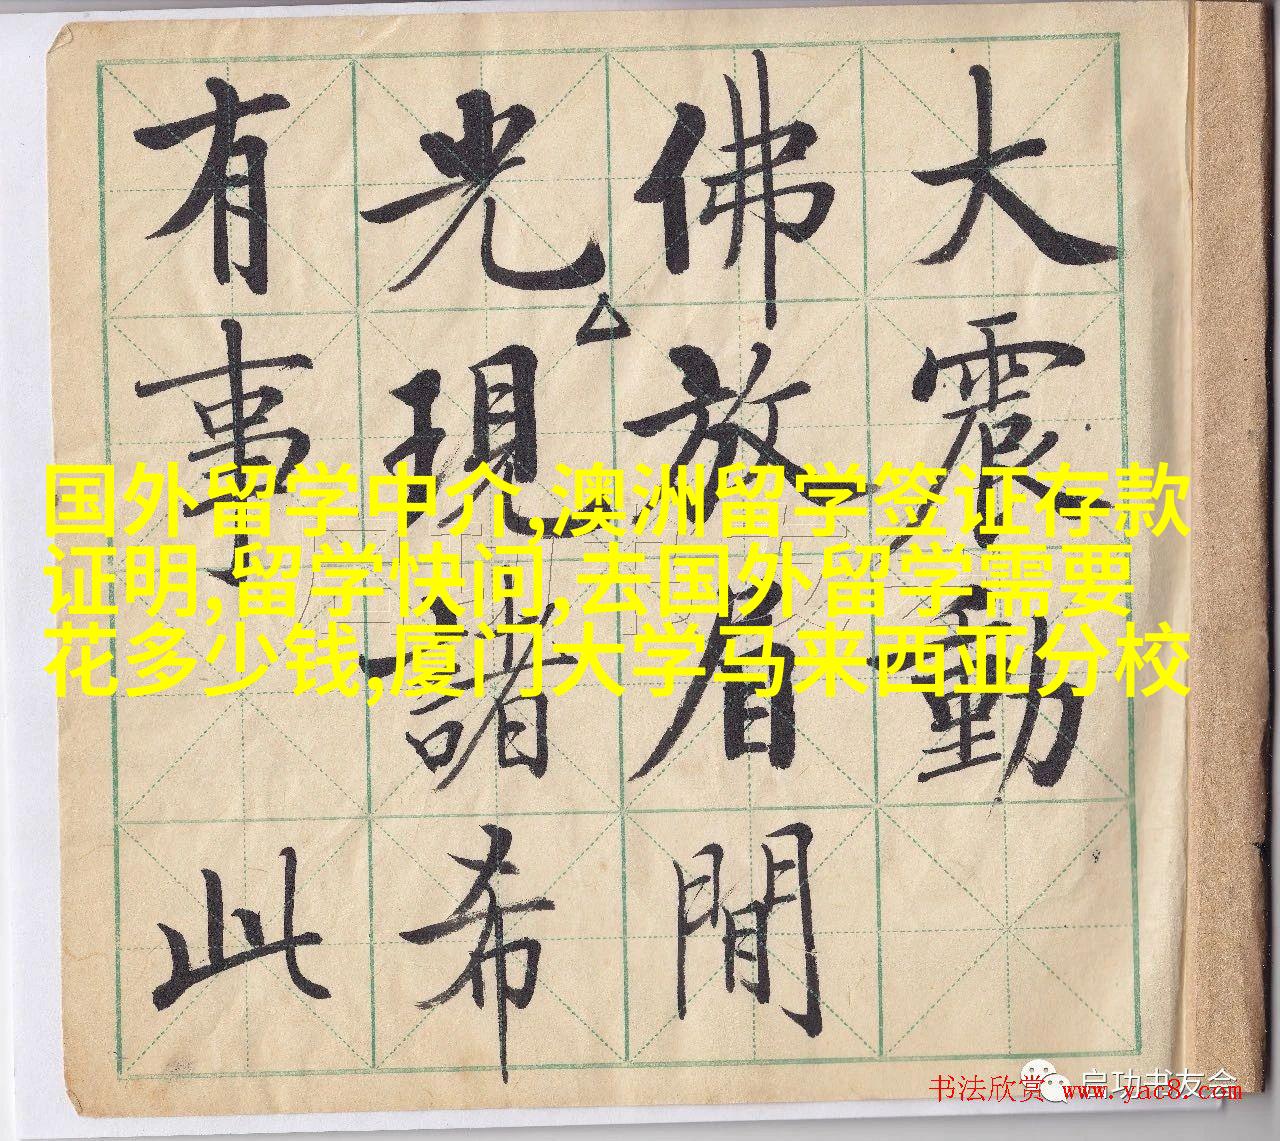 大震動
佛放眉間
光現諸希
有事此
国外留学中介,澳洲留学签证存款
证明,留学快问,去国外留学需要
花多少钱,厦门大学马来西亚分校
启功书友会
书法欣赏 www.yac8.com